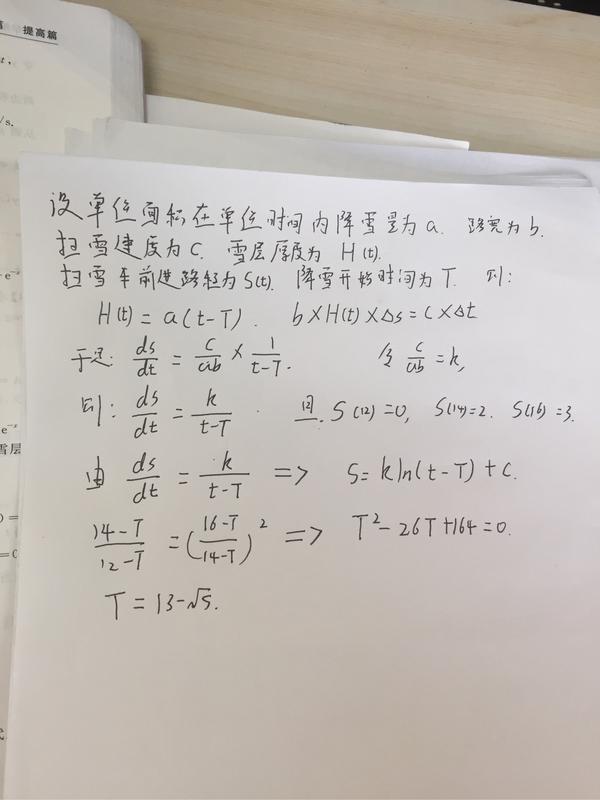 提高篇
/s.
设单位面积在单位时间内降雪量为 a. 路宽为 b.
扫雪速度为 C. 雪层厚度为 H(t).
扫雪车前进路径为 S(t). 降雪开始时间为 T. 则:
H(t) = a(t-T). b×H(t)×Δs = C×Δt
于是: ds/dt = C/ab × 1/(t-T). 令 C/ab = k,
则: ds/dt = k/(t-T). 因. S(12)=0, S(14)=2. S(16)=3.
由 ds/dt = k/(t-T) => S = k ln(t-T) + C.
(14-T)/(12-T) = ((16-T)/(14-T))^2 => T^2 - 26T + 164 = 0.
T = 13 - √5.
雪层